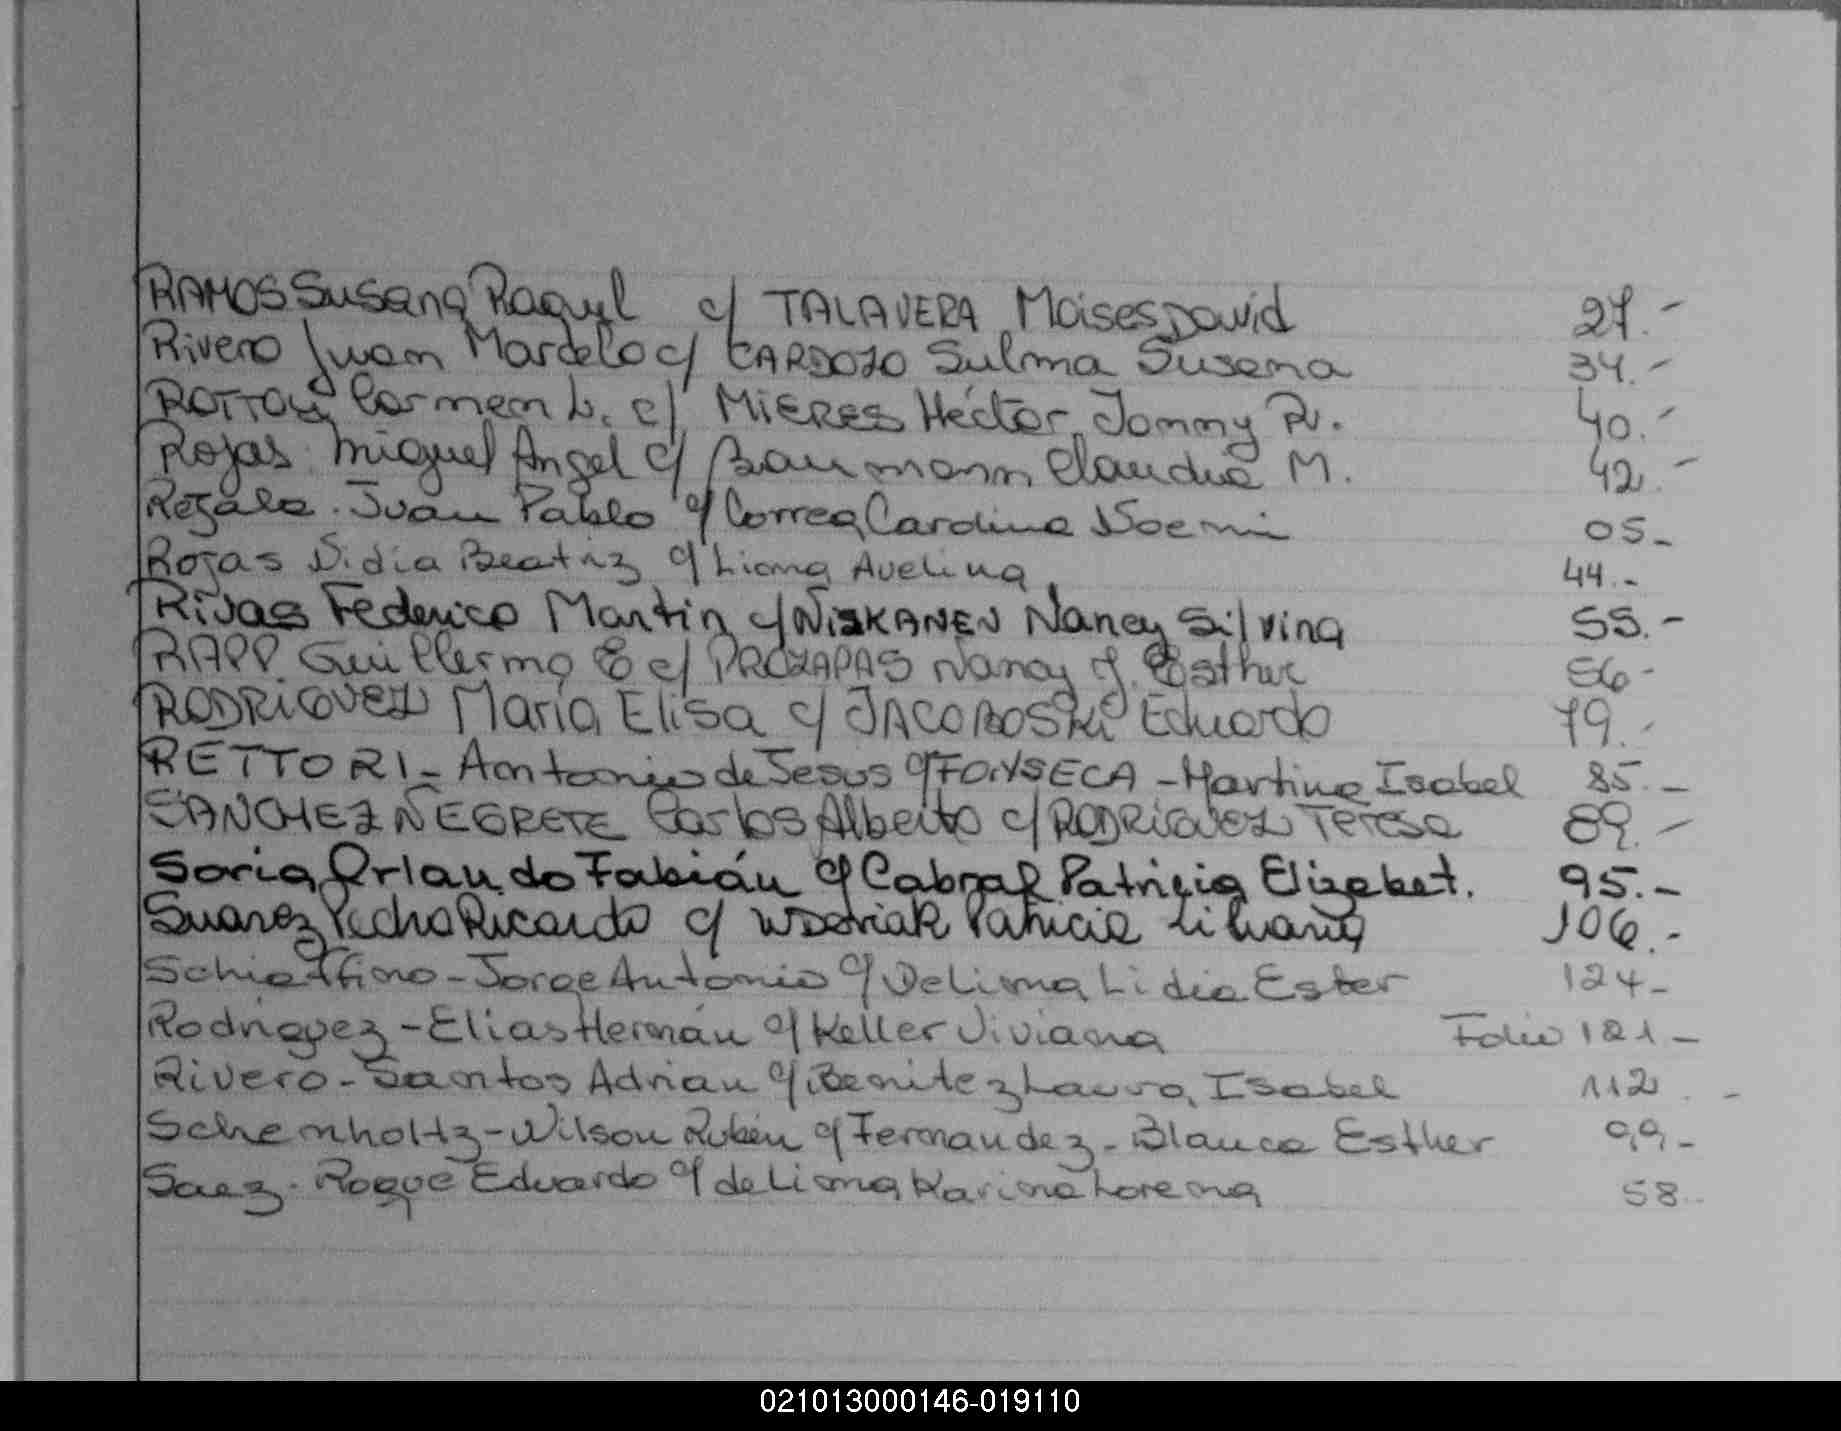 RAMOS Susana Raquel c/ TALAVERA Moises David 27.-
Rivero Juan Marcelo c/ CARDOZO Sulma Susana 34.-
Carmen L. c/ MIERES Héctor Tommy R. 40.-
Rojas Miguel Angel c/ Baumann Claudia M. 42.-
Juan Pablo c/ Correa Cardine Noemi 05-
Rojas Nidia Beatriz c/ Liama Avelina 44.-
Rivas Federico Martin c/ NISKANEN Nancy Silvina 55.-
RAPP Guillermo E c/ PROZAPAS Nancy Esther 56-
RODRIGUEZ Maria Elisa c/ JACOBOSKI Eduardo 79.-
RETTORI - Antonio de Jesus c/ FONSECA - Martina Isabel 85.-
SANCHEZ NEGRETE Carlos Alberto c/ RODRIGUEZ Teresa 89.-
Soria Orlando Fabián c/ Cabral Patricia Elizabet. 95.-
Suarez Pedro Ricardo c/ Patricia Liliana 106.-
Schiaffino - Jorge Antonio c/ De Lima Lidia Ester 124-
Rodriguez - Elias Hernán c/ Keller Viviana Folio 121-
Rivero - Santos Adrian c/ Benitez Laura Isabel 112.-
Schemholtz - Wilson Rubén c/ Fernandez - Blanca Esther 99-
Saez. Roque Eduardo c/ de Lima Karina Lorena 58
021013000146-019110